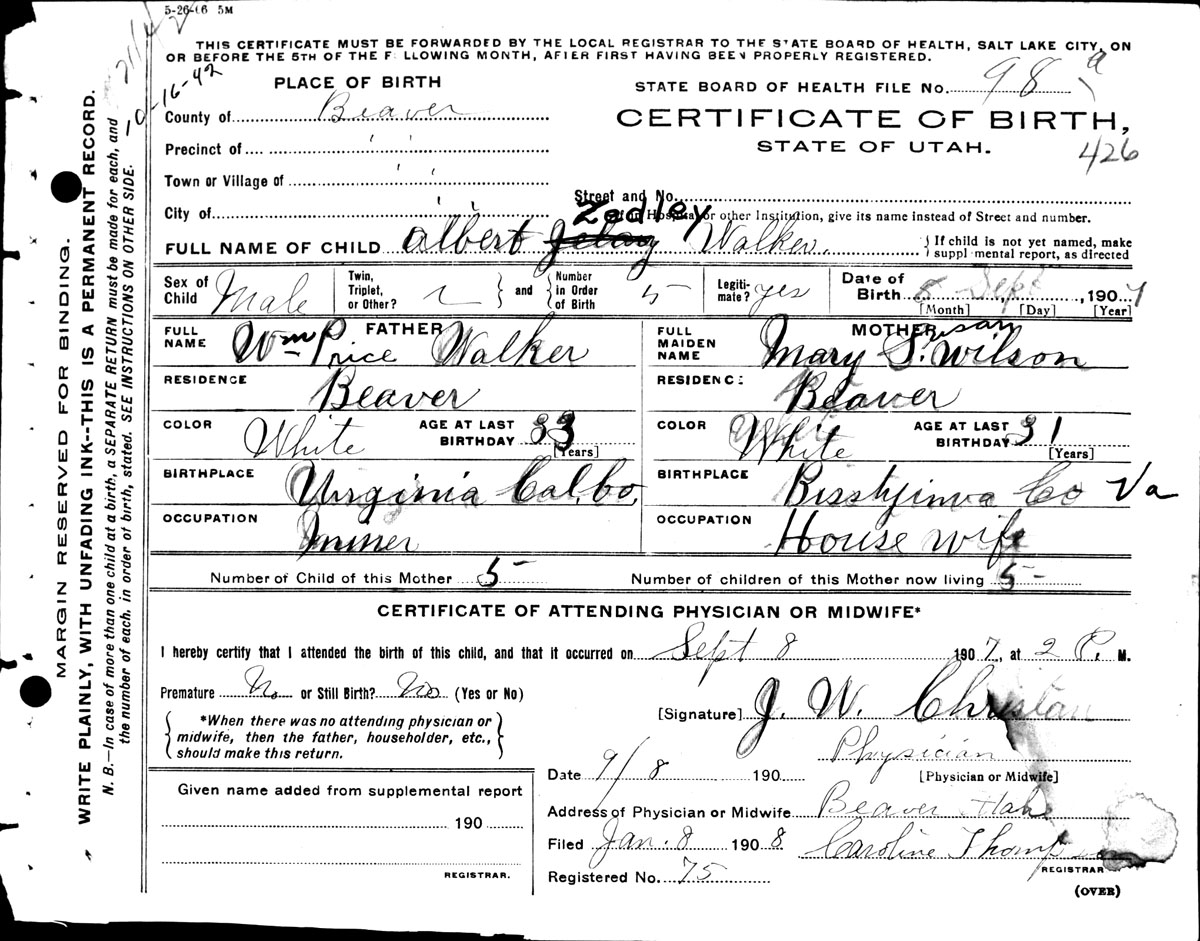 5-26-06 5M
THIS CERTIFICATE MUST BE FORWARDED BY THE LOCAL REGISTRAR TO THE STATE BOARD OF HEALTH, SALT LAKE CITY, ON
OR BEFORE THE 5TH OF THE FOLLOWING MONTH, AFTER FIRST HAVING BEEN PROPERLY REGISTERED.
10-16-42
PLACE OF BIRTH
STATE BOARD OF HEALTH FILE No. 98 a
County of Beaver
CERTIFICATE OF BIRTH,
STATE OF UTAH.
426
Precinct of " "
Town or Village of " "
Street and No.
City of " "
or other Institution, give its name instead of Street and number.
Zedley
FULL NAME OF CHILD Albert Walker.
{ If child is not yet named, make
supplemental report, as directed
Sex of Child Male
Twin, Triplet, or Other? } and { Number in Order of Birth 5
Legitimate? yes
Date of Birth 8 Sept, 1907
[Month] [Day] [Year]
FATHER
FULL NAME Wm Price Walker
MOTHER
FULL MAIDEN NAME Mary S. Wilson
RESIDENCE Beaver
RESIDENCE Beaver
COLOR White AGE AT LAST BIRTHDAY 33 [Years]
COLOR White AGE AT LAST BIRTHDAY 31 [Years]
BIRTHPLACE Virginia
BIRTHPLACE Co Va
OCCUPATION Miner
OCCUPATION House wife
Number of Child of this Mother 5
Number of children of this Mother now living 5
CERTIFICATE OF ATTENDING PHYSICIAN OR MIDWIFE*
I hereby certify that I attended the birth of this child, and that it occurred on Sept 8 1907, at 2 P. M.
Premature No or Still Birth? No (Yes or No)
{ *When there was no attending physician or
midwife, then the father, householder, etc.,
should make this return. }
[Signature] J. W. Christian
Physician
[Physician or Midwife]
Date 9/8 190
Given name added from supplemental report
190
REGISTRAR.
Address of Physician or Midwife Beaver Utah
Filed Jan. 8 1908 Caroline Thompson
REGISTRAR
Registered No. 75
(OVER)
MARGIN RESERVED FOR BINDING.
WRITE PLAINLY, WITH UNFADING INK--THIS IS A PERMANENT RECORD.
N. B.—In case of more than one child at a birth, a SEPARATE RETURN must be made for each, and
the number of each, in order of birth, stated. SEE INSTRUCTIONS ON OTHER SIDE.